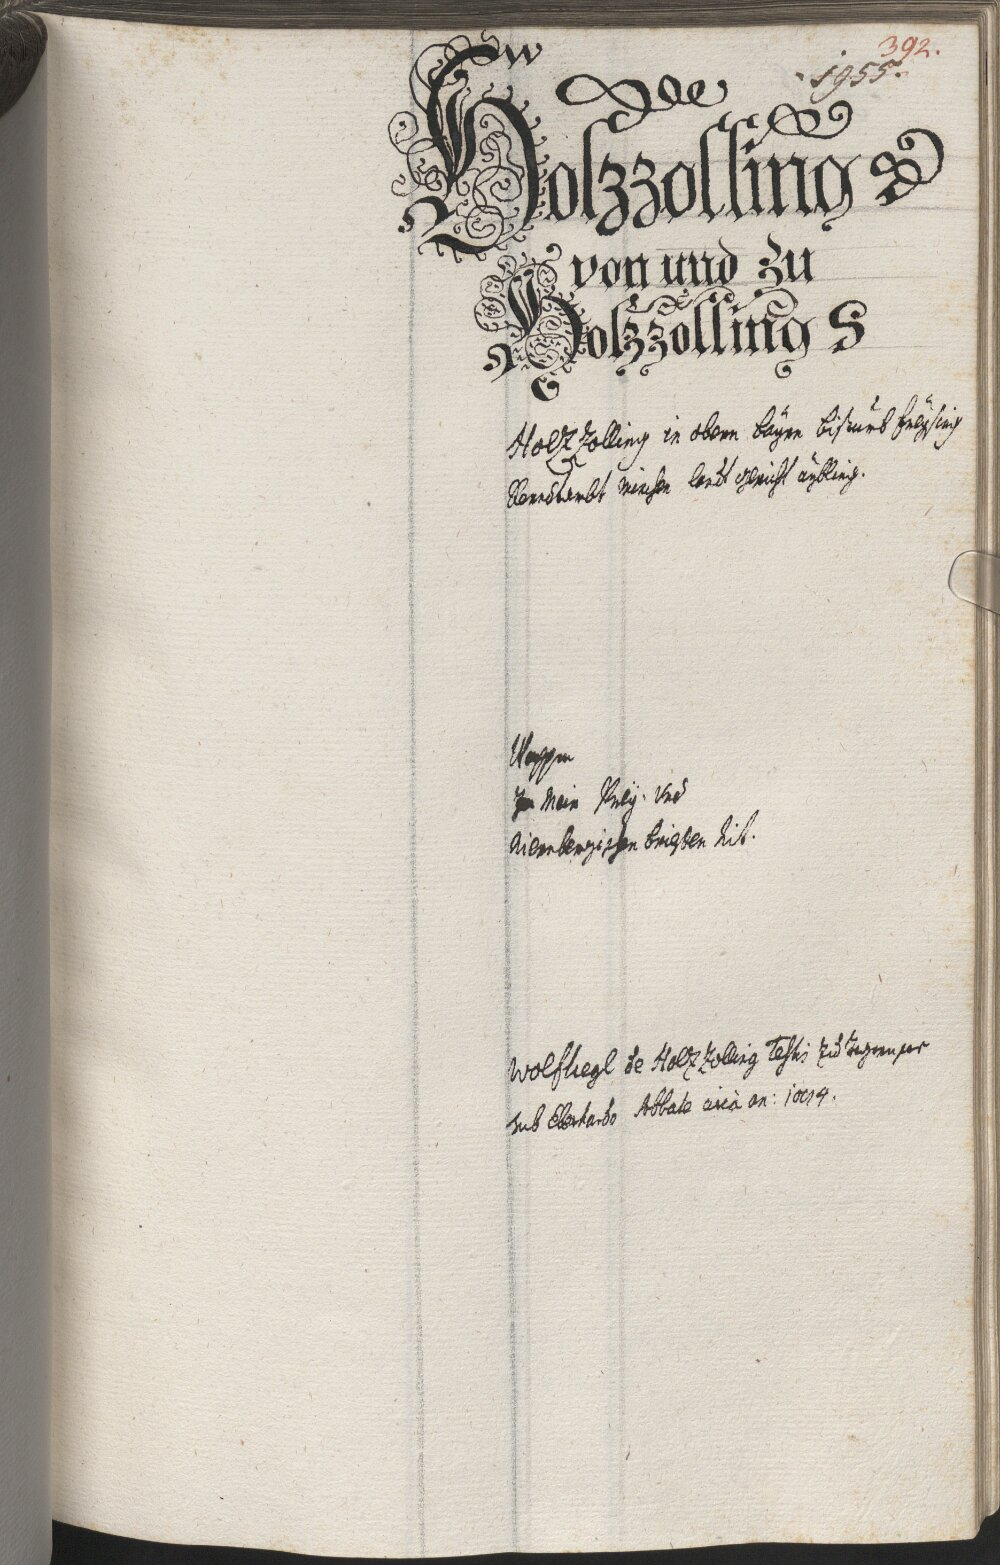 392.
1955.
de
Holzzolling
von und zu
Holzzolling
Holz Zolling in obern bäyrn bistumb freÿsing
Renndtambt München landt gericht äybling.
Wappen
In mein und
Niernbergischen
Wolfhegl de Holz Zolling Testis zu Tegernsee
sub Eberhardo Abbate circa an: 1094.